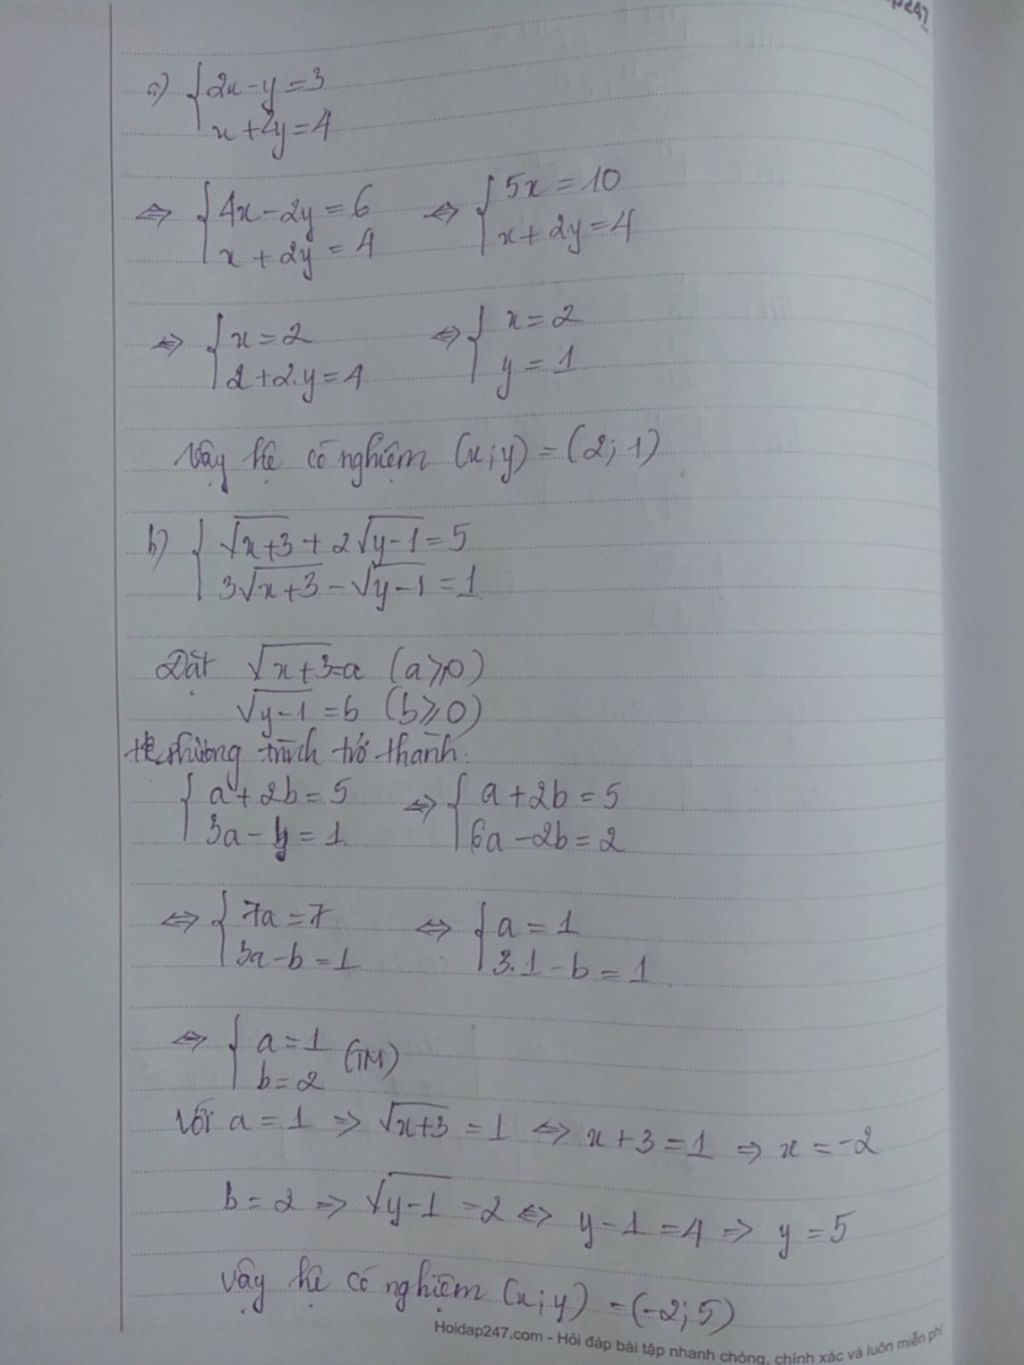 a) { 2x - y = 3
x + 2y = 4
⇔ { 4x - 2y = 6 ⇔ { 5x = 10
x + 2y = 4 x + 2y = 4
⇔ { x = 2 ⇔ { x = 2
2 + 2.y = 4 y = 1
Vậy hệ có nghiệm (x; y) = (2; 1)
b) { √x+3 + 2√y-1 = 5
3√x+3 - √y-1 = 1
Đặt √x+3 = a (a ≥ 0)
√y-1 = b (b ≥ 0)
Hệ phương trình trở thành:
{ a + 2b = 5 ⇔ { a + 2b = 5
3a - b = 1 6a - 2b = 2
⇔ { 7a = 7 ⇔ { a = 1
3a - b = 1 3.1 - b = 1
⇔ { a = 1 (TM)
b = 2
Với a = 1 ⇒ √x+3 = 1 ⇔ x + 3 = 1 ⇒ x = -2
b = 2 ⇒ √y-1 = 2 ⇔ y - 1 = 4 ⇒ y = 5
Vậy hệ có nghiệm (x; y) = (-2; 5)
Hoidap247.com - Hỏi đáp bài tập nhanh chóng, chính xác và luôn miễn phí